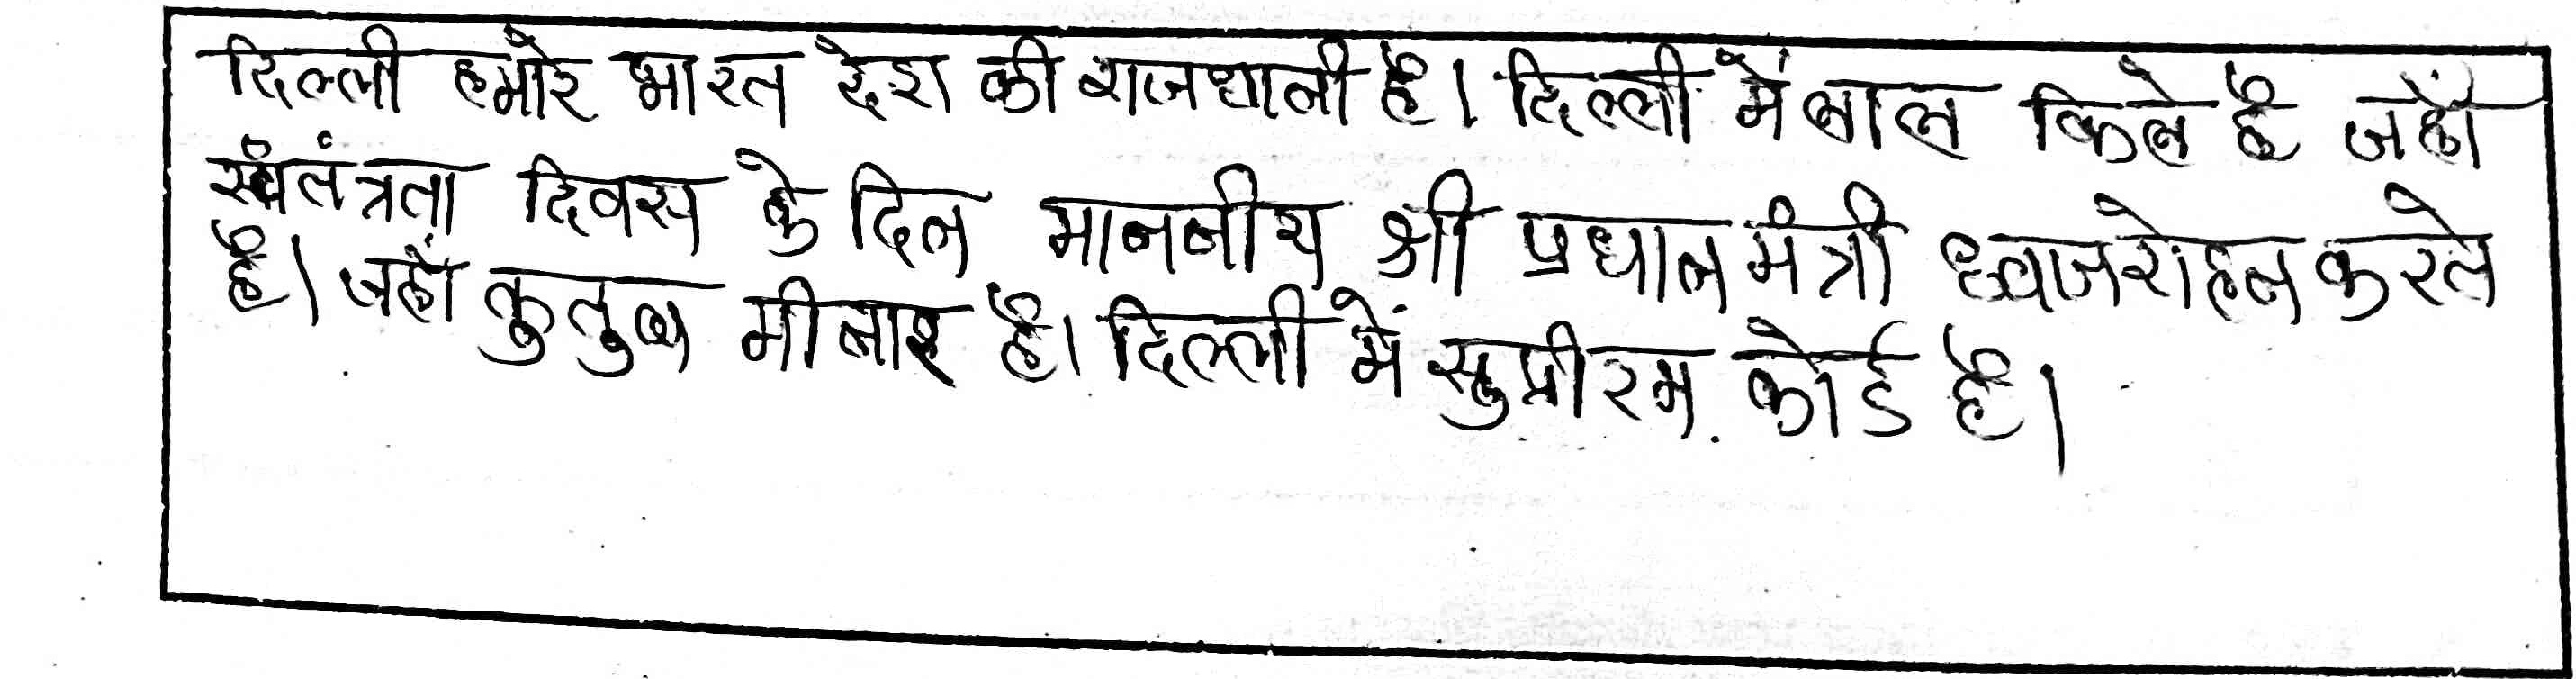 दिल्ली हमारे भारत देश की राजधानी है। दिल्ली में लाल किले है जहाँ
स्वंतंत्रता दिवस के दिन माननीय श्री प्रधान मंत्री ध्वाजरोहन करते
है। जहाँ कुतुब मीनार है। दिल्ली में सुप्रीरम कोर्ड है।